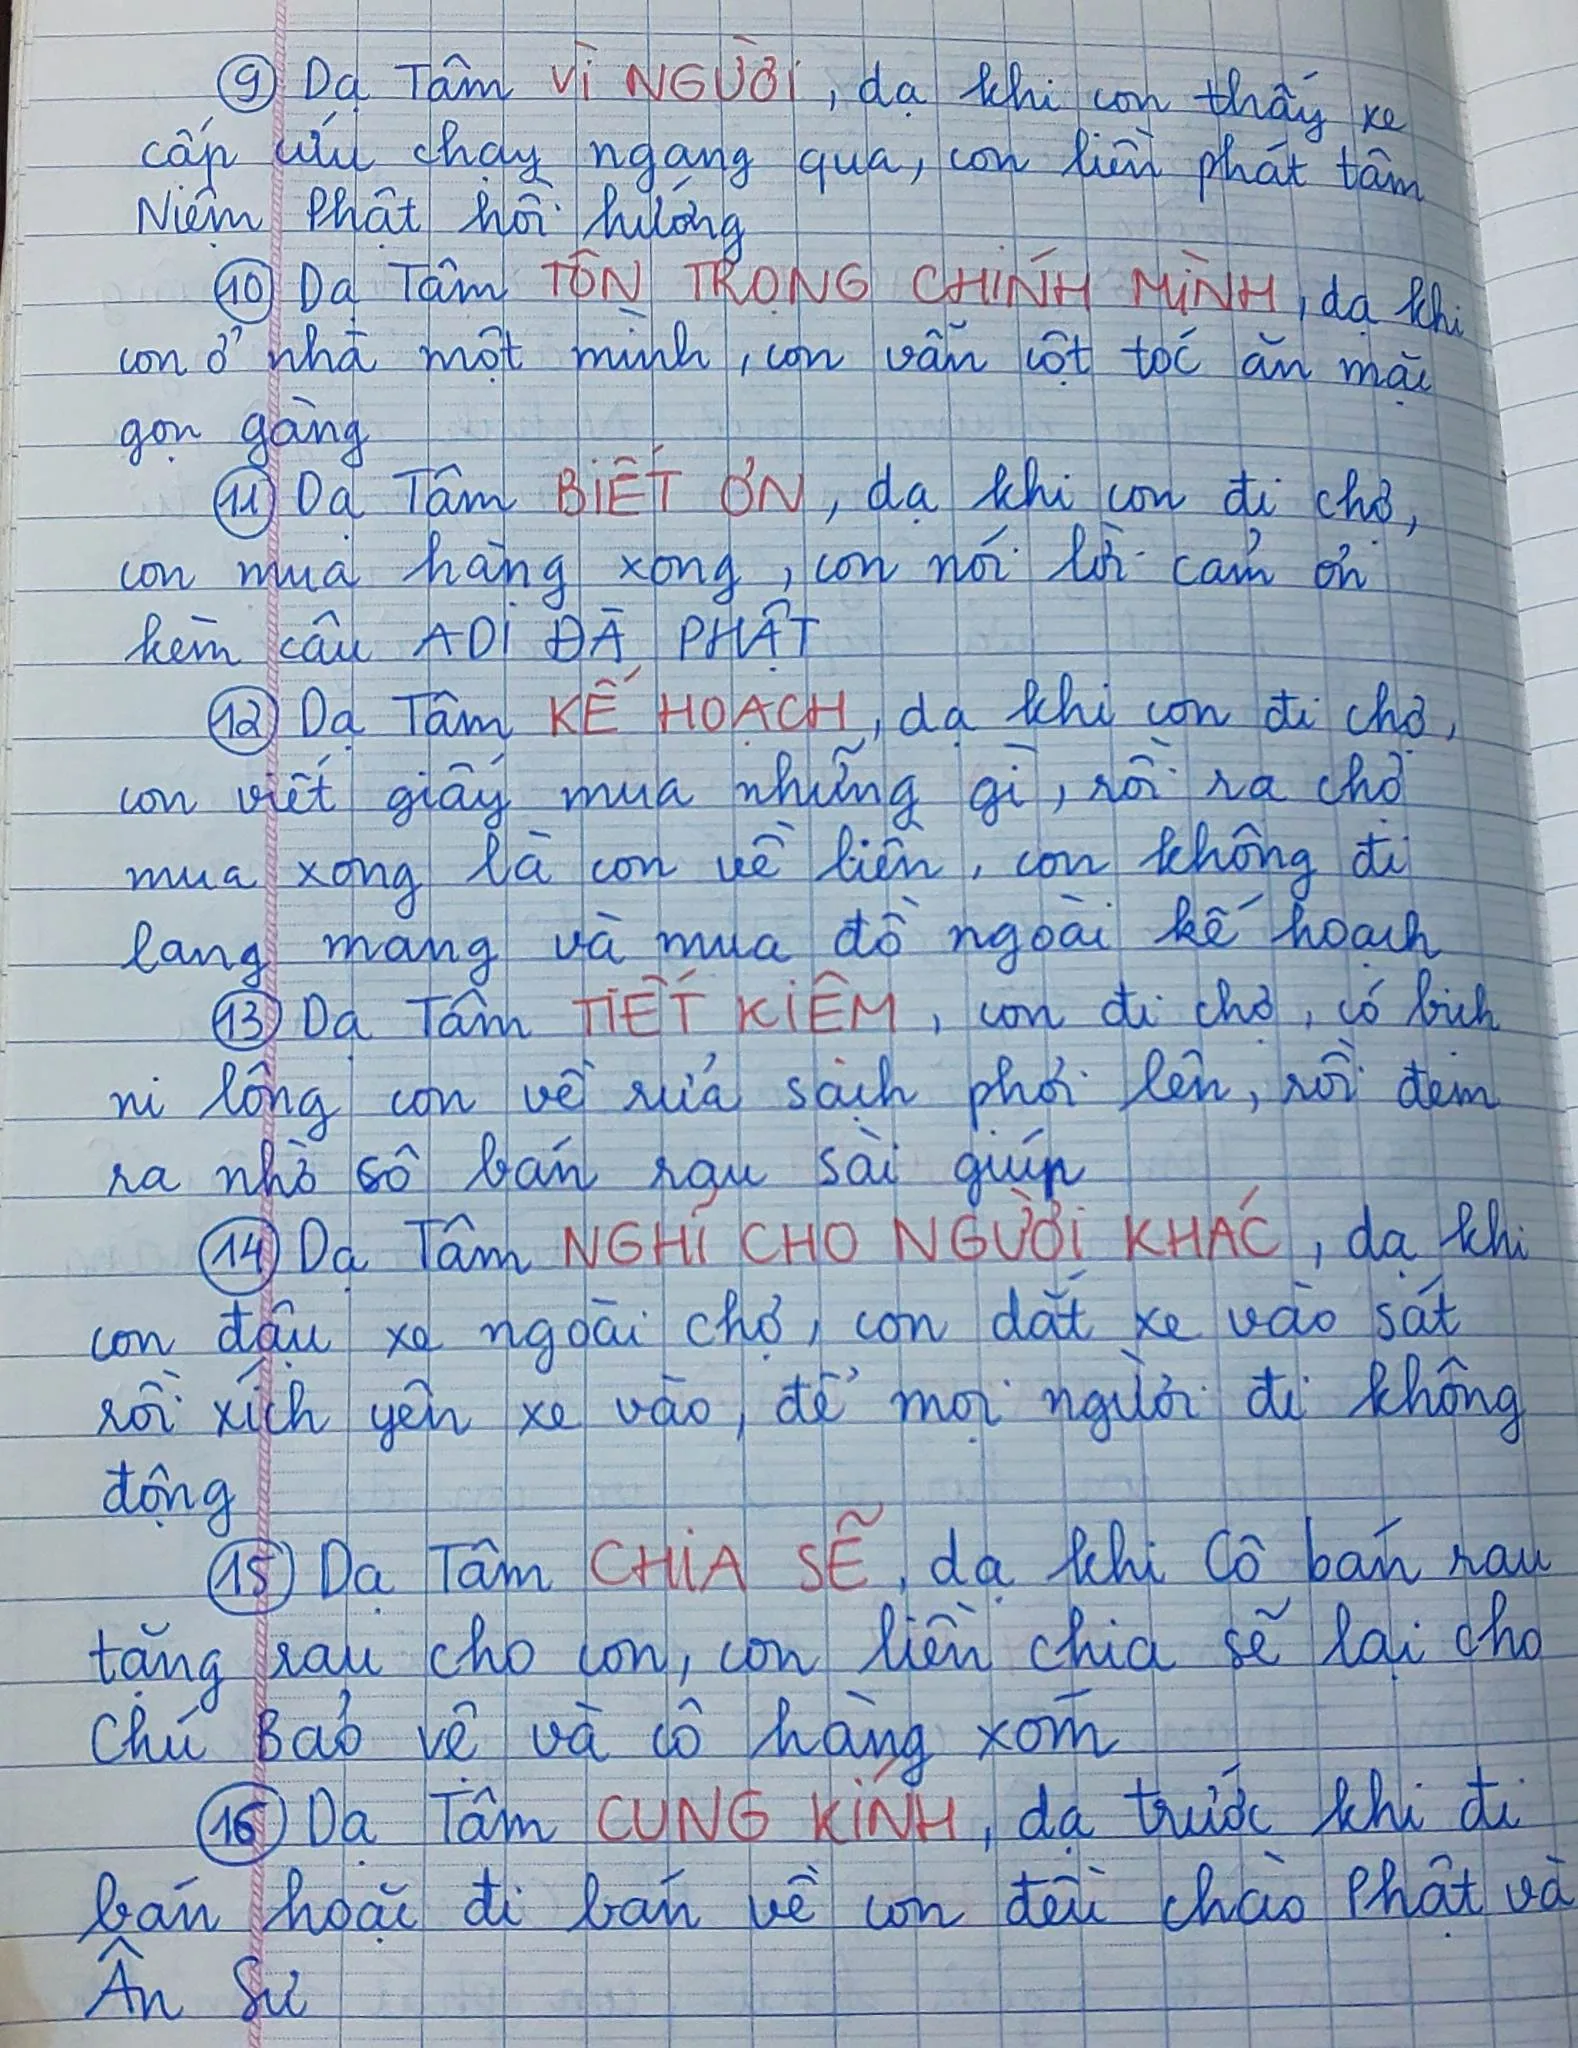 9 Dạ Tâm VÌ NGƯỜI, dạ khi con thấy xe
cấp cứu chạy ngang qua, con liền phát tâm
Niệm Phật hồi hướng
10 Dạ Tâm TÔN TRỌNG CHÍNH MÌNH, dạ khi
con ở nhà một mình, con vẫn cột tóc ăn mặc
gọn gàng
11 Dạ Tâm BIẾT ƠN, dạ khi con đi chợ,
con mua hàng xong, con nói lời cảm ơn
kèm câu A DI ĐÀ PHẬT
12 Dạ Tâm KẾ HOẠCH, dạ khi con đi chợ,
con viết giấy mua những gì, rồi ra chợ
mua xong là con về liền, con không đi
lang mang và mua đồ ngoài kế hoạch
13 Dạ Tâm TIẾT KIỆM, con đi chợ, có bịch
ni lông con về rửa sạch phơi lên, rồi đem
ra nhờ cô bán rau sài giúp
14 Dạ Tâm NGHĨ CHO NGƯỜI KHÁC, dạ khi
con đậu xe ngoài chợ, con dắt xe vào sát
rồi xích yên xe vào, để mọi người đi không
động
15 Dạ Tâm CHIA SẼ, dạ khi Cô bán rau
tặng rau cho con, con liền chia sẽ lại cho
Chú Bảo vệ và cô hàng xóm
16 Dạ Tâm CUNG KÍNH, dạ trước khi đi
bán hoặc đi bán về con đều chào Phật và
Ân Sư